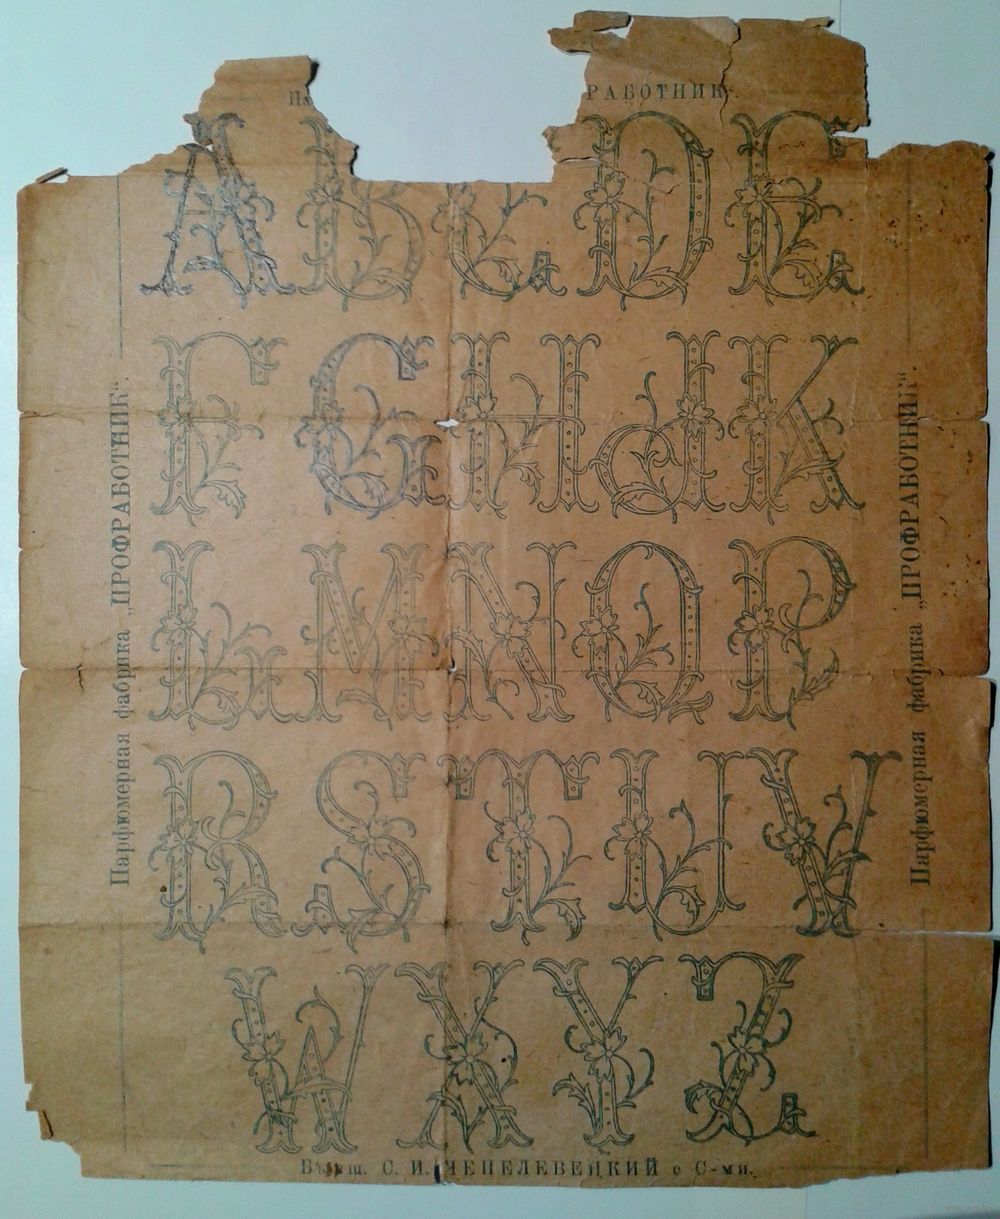 РАБОТНИК
A B C D E
F G H J K
L M N O P
R S T U V
W X Y Z
Парфюмерная фабрика „ПРОФРАБОТНИК“.
Парфюмерная фабрика „ПРОФРАБОТНИК“.
С. И. ЧЕПЕЛЕВЕЦКИЙ с С-ми.